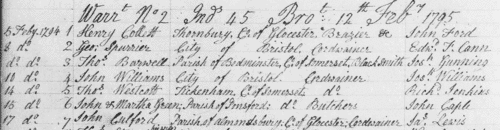 Warr.t N.o 2 Ind.s 45 Bro.t 12.th Feb.y 1795
5 Feby. 1794 1 Henry Collett Thornbury, C.o of Glocester Brazier &c John Ford
8 d.o 2 Geo. Spurrier City of Bristol Cordwainer Edw.d T. Cann
d.o d.o 3 Tho.s Barwell Parish of Bedminster, C.o of Somerset, Black Smith Jos. Gunning
10 d.o 4 John Williams City of Bristol. Cordwainer Jos. Williams
14 d.o 5 Tho.s Westcott Tickenham, C. of Somerset d.o Rich.d Jenkins
15 d.o 6 John & Martha Green, Parish of d.o Butchers John Cable
17 d.o 7 John Parish of Almondsbury, C. of Glocester, Cordwainer Ja.s Lewis